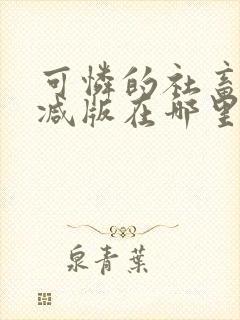 可憐的社畜
減版在哪里
泉青葉